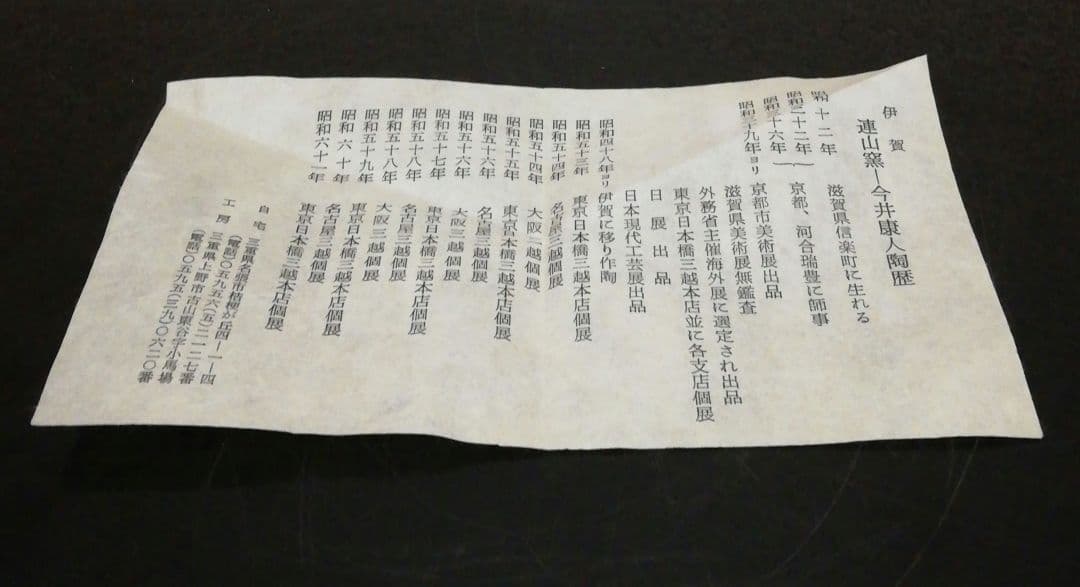 伊賀
連山窯―今井康人陶歴
昭和十二年 滋賀県信楽町に生れる
昭和三十二年 京都、河合瑞豊に師事
昭和三十六年
昭和三十九年ヨリ 京都市美術展出品
滋賀県美術展無鑑査
外務省主催海外展に選定され出品
東京日本橋三越本店並に各支店個展
日展出品
日本現代工芸展出品
昭和四十八年ヨリ 伊賀に移り作陶
昭和五十三年 東京日本橋三越本店個展
昭和五十四年 名古屋三越個展
昭和五十四年 大阪三越個展
昭和五十五年 東京日本橋三越本店個展
昭和五十六年 名古屋三越個展
昭和五十六年 大阪三越個展
昭和五十七年 東京日本橋三越本店個展
昭和五十八年 名古屋三越個展
昭和五十八年 大阪三越個展
昭和五十九年 東京日本橋三越本店個展
昭和六十年 名古屋三越個展
昭和六十一年 東京日本橋三越本店個展
自宅 三重県名張市桔梗が丘四―一―四
(電話)〇五九五六(五)二一二七番
工房 三重県上野市古山東谷字小馬場
(電話)〇五九五(三九)〇六二〇番